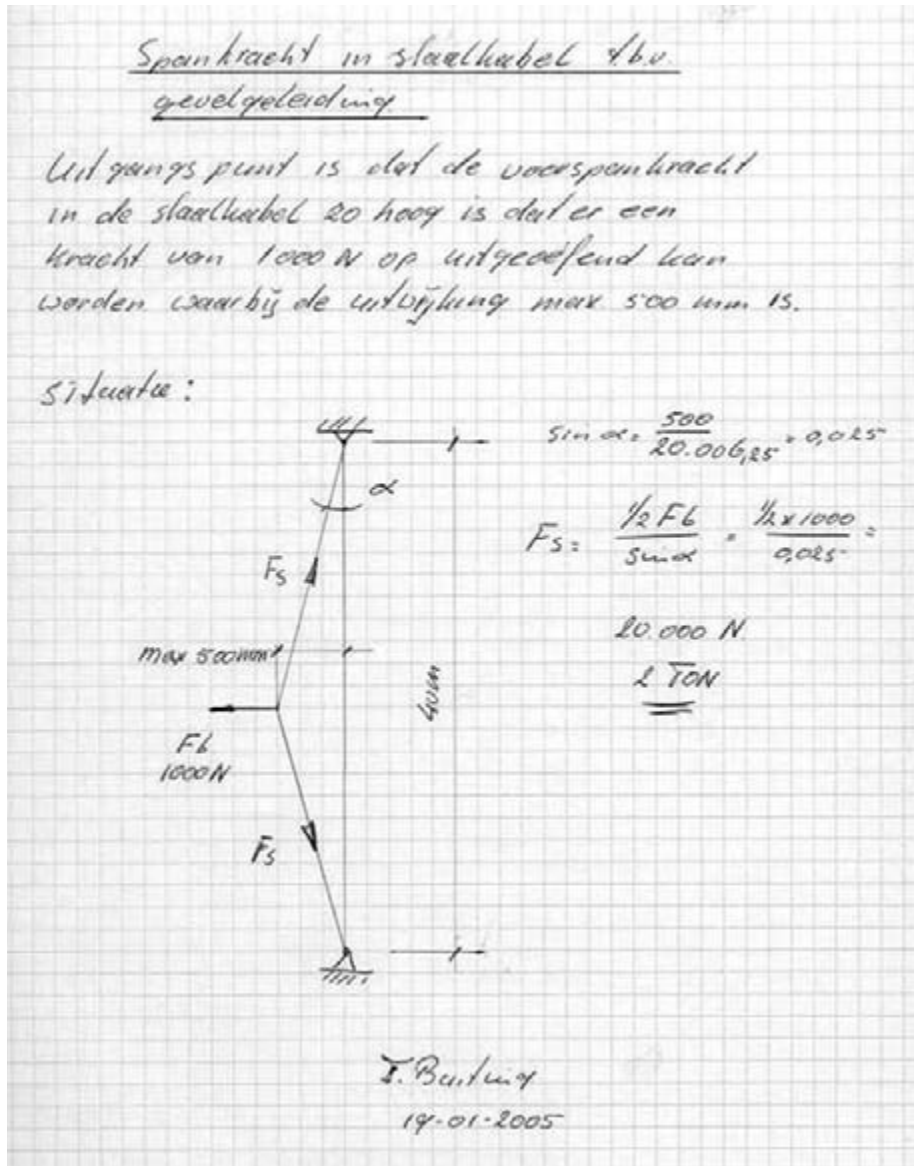 Spankracht in staalkabel t.b.v.
gevelgeleiding
Uitgangs punt is dat de voorspankracht
in de staalkabel zo hoog is dat er een
kracht van 1000 N op uitgeoefend kan
worden waarbij de uitwijking max 500 mm is.
Situatie:
sin α = 500 / 20.006,25 = 0,025
α
Fs = ½ Fb / sin α = ½ x 1000 / 0,025 =
Fs
20.000 N
max 500mm
2 TON
40m
Fb
1000 N
Fs
19-01-2005